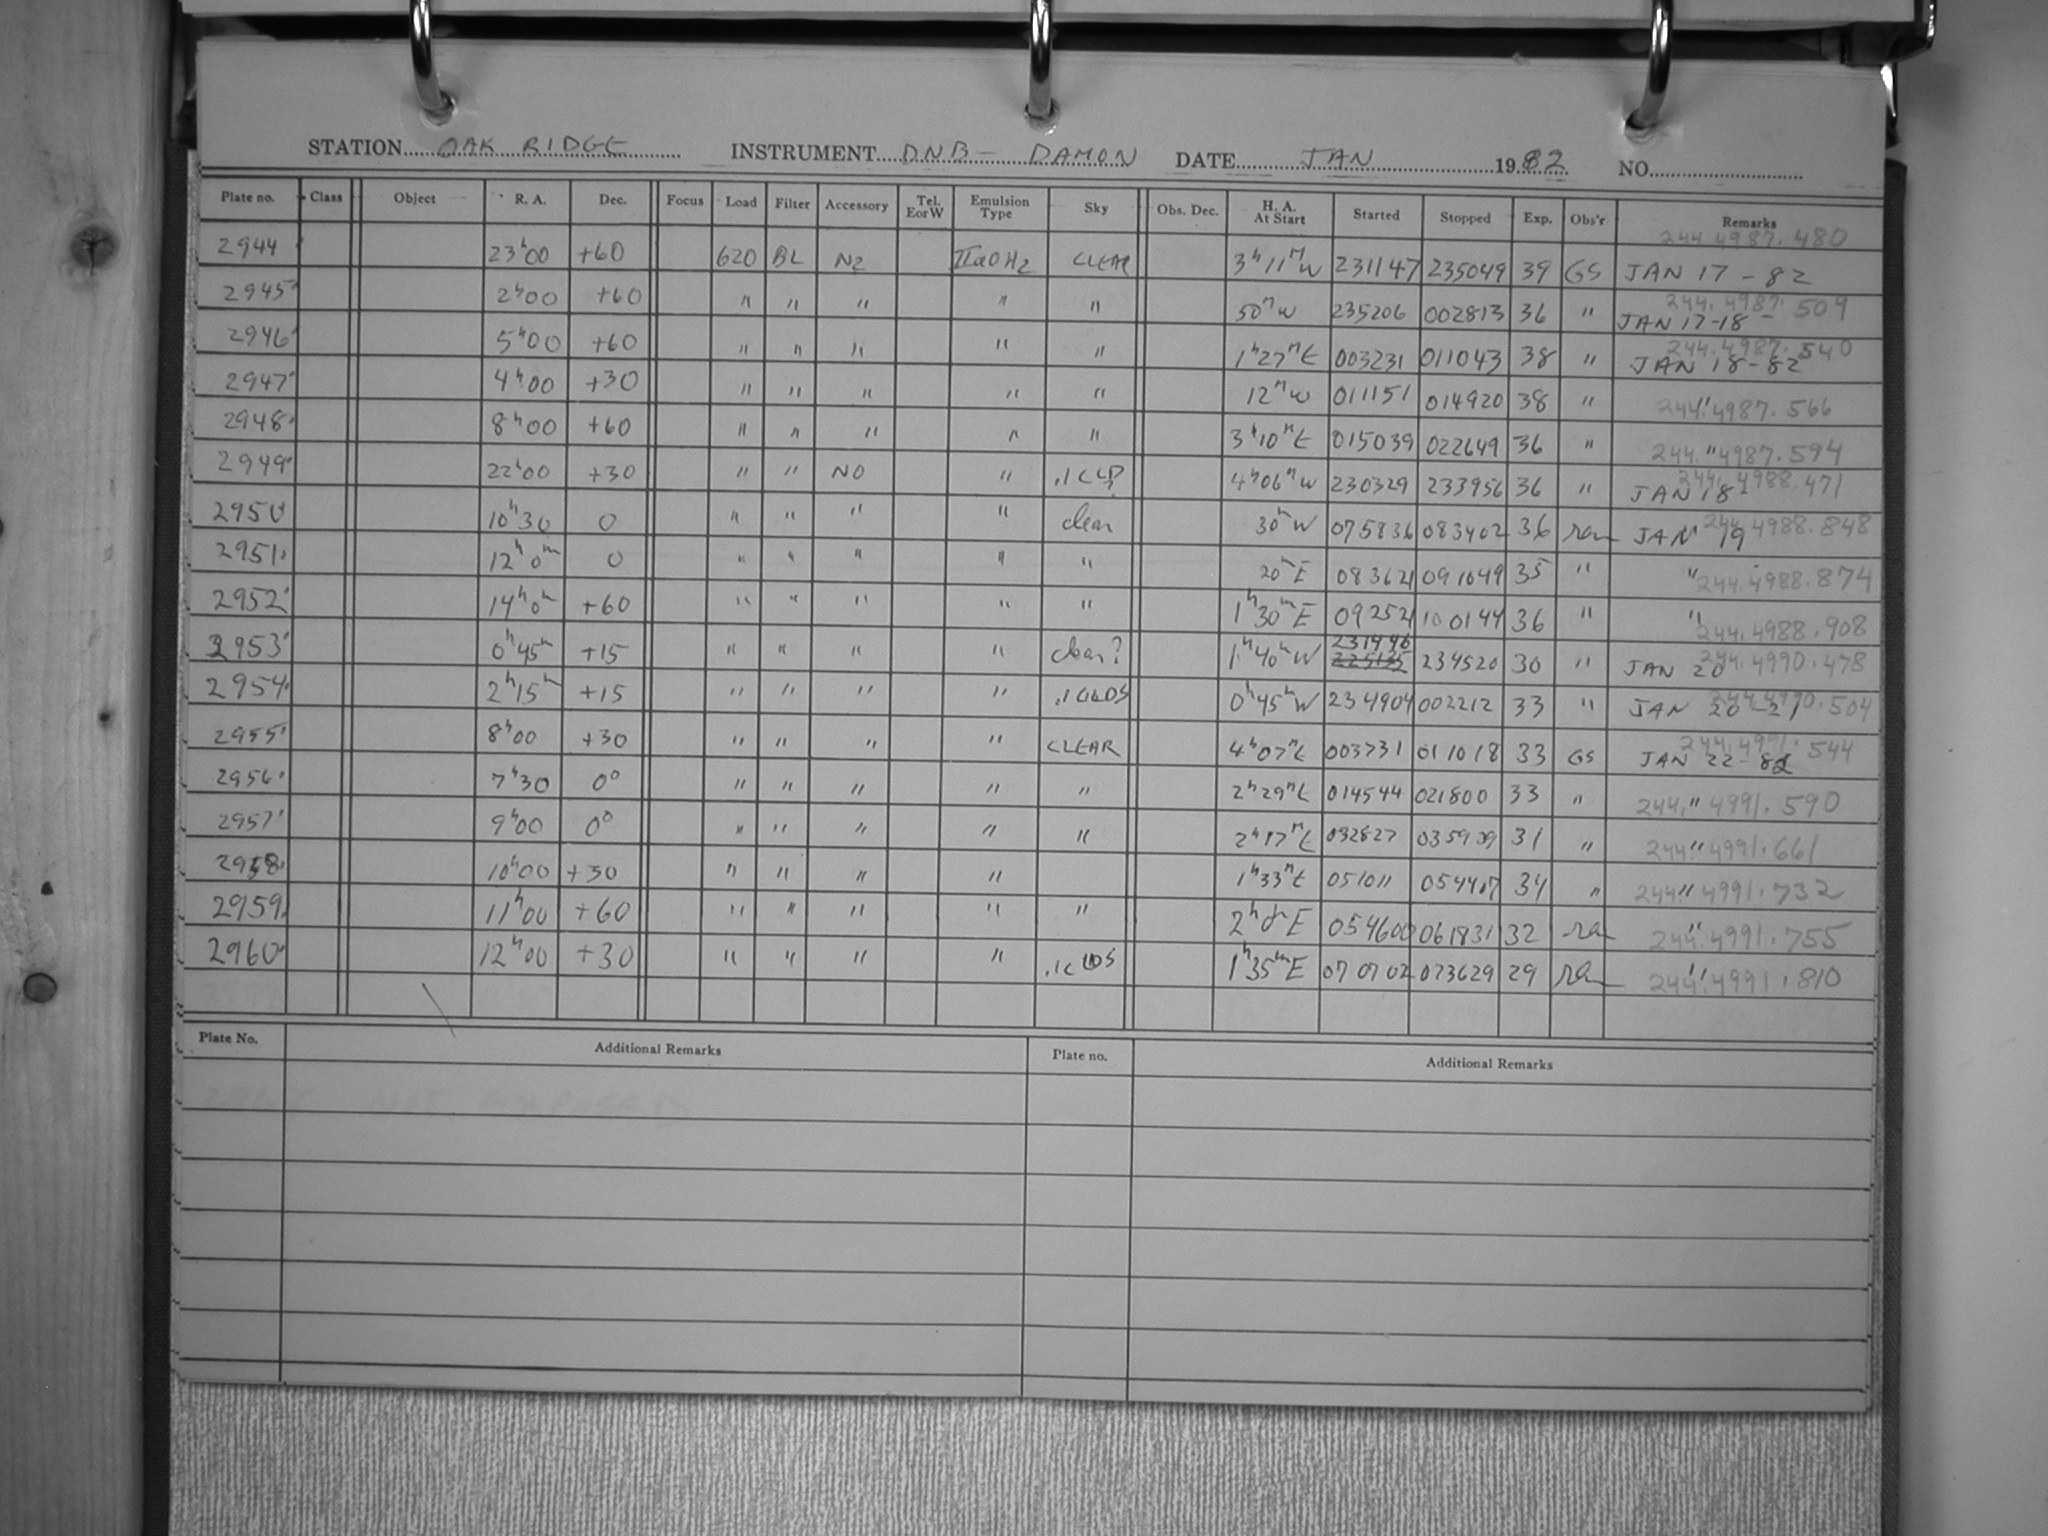 STATION OAK RIDGE INSTRUMENT DNB - DAMON DATE JAN 1982 NO.
Plate no. Class Object R. A. Dec. Focus Load Filter Accessory Tel. E or W Emulsion Type Sky Obs. Dec. H. A. At Start Started Stopped Exp. Obs'r Remarks
244 4987.480
2944 23h00 +60 620 BL N2 IIaOH2 CLEAR 3h11m W 231147 235049 39 GS JAN 17 - 82
2945 2h00 +60 " " " " " 50m W 235206 002813 36 " 244.4987.509 JAN 17-18
2946 5h00 +60 " " " " " 1h27m E 003231 011043 38 " 244.4987.540 JAN 18-82
2947 4h00 +30 " " " " " 12m W 011151 014920 38 " " 244.4987.566
2948 8h00 +60 " " " " " 3h10m E 015039 022649 36 " " 244.4987.594
2949 22h00 +30 " " NO " 4h06m W 230329 233956 36 " 244.4988.471 JAN 18
2950 10h30 0 " " " " clear 30m W 075836 083402 36 JAN 19 244.4988.848
2951 12h0m 0 " " " " " 20m E 083621 091049 35 " " 244.4988.874
2952 14h0m +60 " " " " " 1h30m E 092521 100144 36 " " 244.4988.908
2953 0h45m +15 " " " " clear? 1h40m W 231446 234520 30 " JAN 20 244.4990.478
2954 2h15m +15 " " " " .1 CLDS 0h45m W 234904 002212 33 " JAN 20-21 244.4990.504
2955 8h00 +30 " " " " CLEAR 4h07m E 003731 011018 33 GS 244.4991.544 JAN 22-82
2956 7h30 0° " " " " " 2h29m E 014544 021800 33 " " 244.4991.590
2957 9h00 0° " " " " " 2h17m E 032827 035909 31 " " 244.4991.661
2958 10h00 +30 " " " " 1h33m E 051011 054417 34 " " 244.4991.732
2959 11h00 +60 " " " " " E 054600 061831 32 " 244.4991.755
2960 12h00 +30 " " " " .1 CLDS 1h35m E 070702 073629 29 " 244.4991.810
Plate No. Additional Remarks Plate no. Additional Remarks